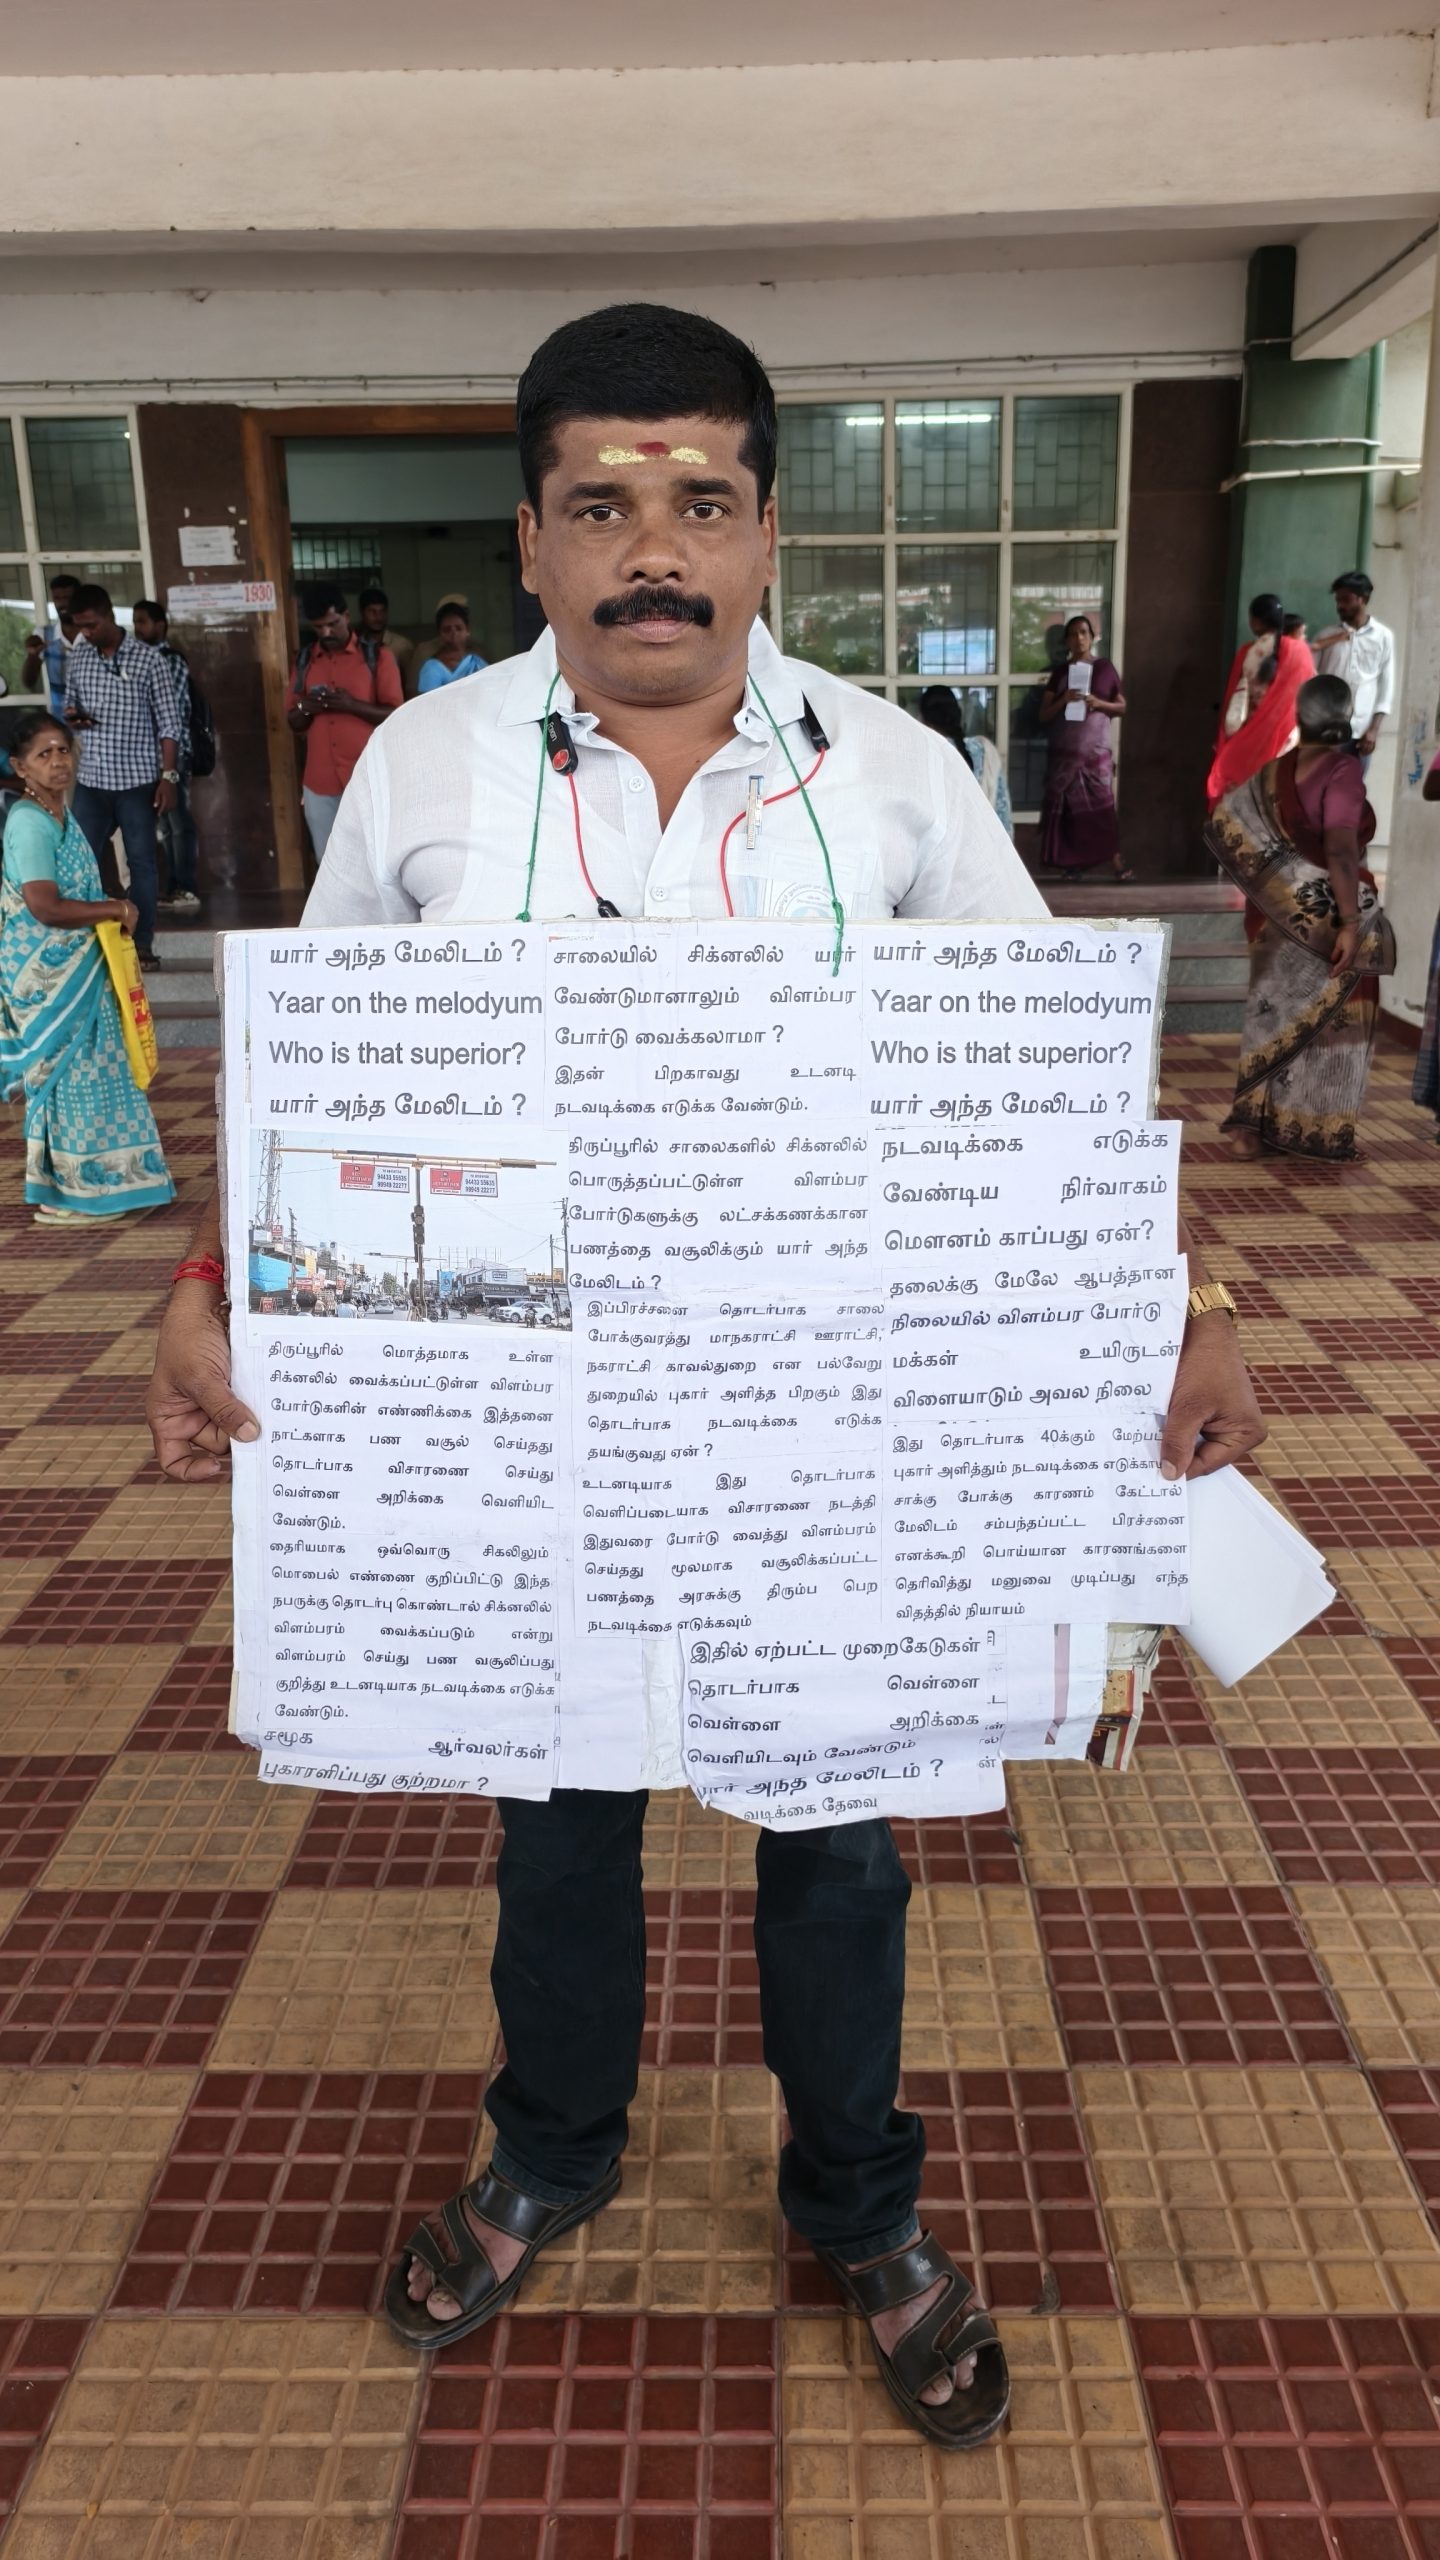 1930
யார் அந்த மேலிடம் ?
Yaar on the melodyum
Who is that superior?
யார் அந்த மேலிடம் ?
94433 55935
99949 22277
94433 55935
99949 22277
திருப்பூரில் மொத்தமாக உள்ள
சிக்னலில் வைக்கப்பட்டுள்ள விளம்பர
போர்டுகளின் எண்ணிக்கை இத்தனை
நாட்களாக பண வசூல் செய்தது
தொடர்பாக விசாரணை செய்து
வெள்ளை அறிக்கை வெளியிட
வேண்டும்.
தைரியமாக ஒவ்வொரு சிகலிலும்
மொபைல் எண்ணை குறிப்பிட்டு இந்த
நபருக்கு தொடர்பு கொண்டால் சிக்னலில்
விளம்பரம் வைக்கப்படும் என்று
விளம்பரம் செய்து பண வசூலிப்பது
குறித்து உடனடியாக நடவடிக்கை எடுக்க
வேண்டும்.
சமூக ஆர்வலர்கள்
புகாரளிப்பது குற்றமா ?
சாலையில் சிக்னலில் யார்
வேண்டுமானாலும் விளம்பர
போர்டு வைக்கலாமா ?
இதன் பிறகாவது உடனடி
நடவடிக்கை எடுக்க வேண்டும்.
திருப்பூரில் சாலைகளில் சிக்னலில்
பொருத்தப்பட்டுள்ள விளம்பர
போர்டுகளுக்கு லட்சக்கணக்கான
பணத்தை வசூலிக்கும் யார் அந்த
மேலிடம் ?
இப்பிரச்சனை தொடர்பாக சாலை
போக்குவரத்து மாநகராட்சி ஊராட்சி,
நகராட்சி காவல்துறை என பல்வேறு
துறையில் புகார் அளித்த பிறகும் இது
தொடர்பாக நடவடிக்கை எடுக்க
தயங்குவது ஏன் ?
உடனடியாக இது தொடர்பாக
வெளிப்படையாக விசாரணை நடத்தி
இதுவரை போர்டு வைத்து விளம்பரம்
செய்தது மூலமாக வசூலிக்கப்பட்ட
பணத்தை அரசுக்கு திரும்ப பெற
நடவடிக்கை எடுக்கவும்
இதில் ஏற்பட்ட முறைகேடுகள்
தொடர்பாக வெள்ளை
வெள்ளை அறிக்கை
வெளியிடவும் வேண்டும்
யார் அந்த மேலிடம் ?
தேவை
யார் அந்த மேலிடம் ?
Yaar on the melodyum
Who is that superior?
யார் அந்த மேலிடம் ?
நடவடிக்கை எடுக்க
வேண்டிய நிர்வாகம்
மௌனம் காப்பது ஏன்?
தலைக்கு மேலே ஆபத்தான
நிலையில் விளம்பர போர்டு
மக்கள் உயிருடன்
விளையாடும் அவல நிலை
இது தொடர்பாக 40க்கும்
புகார் அளித்தும் நடவடிக்கை
சாக்கு போக்கு காரணம் கேட்டால்
மேலிடம் சம்பந்தப்பட்ட பிரச்சனை
எனக்கூறி பொய்யான காரணங்களை
தெரிவித்து மனுவை முடிப்பது எந்த
விதத்தில் நியாயம்